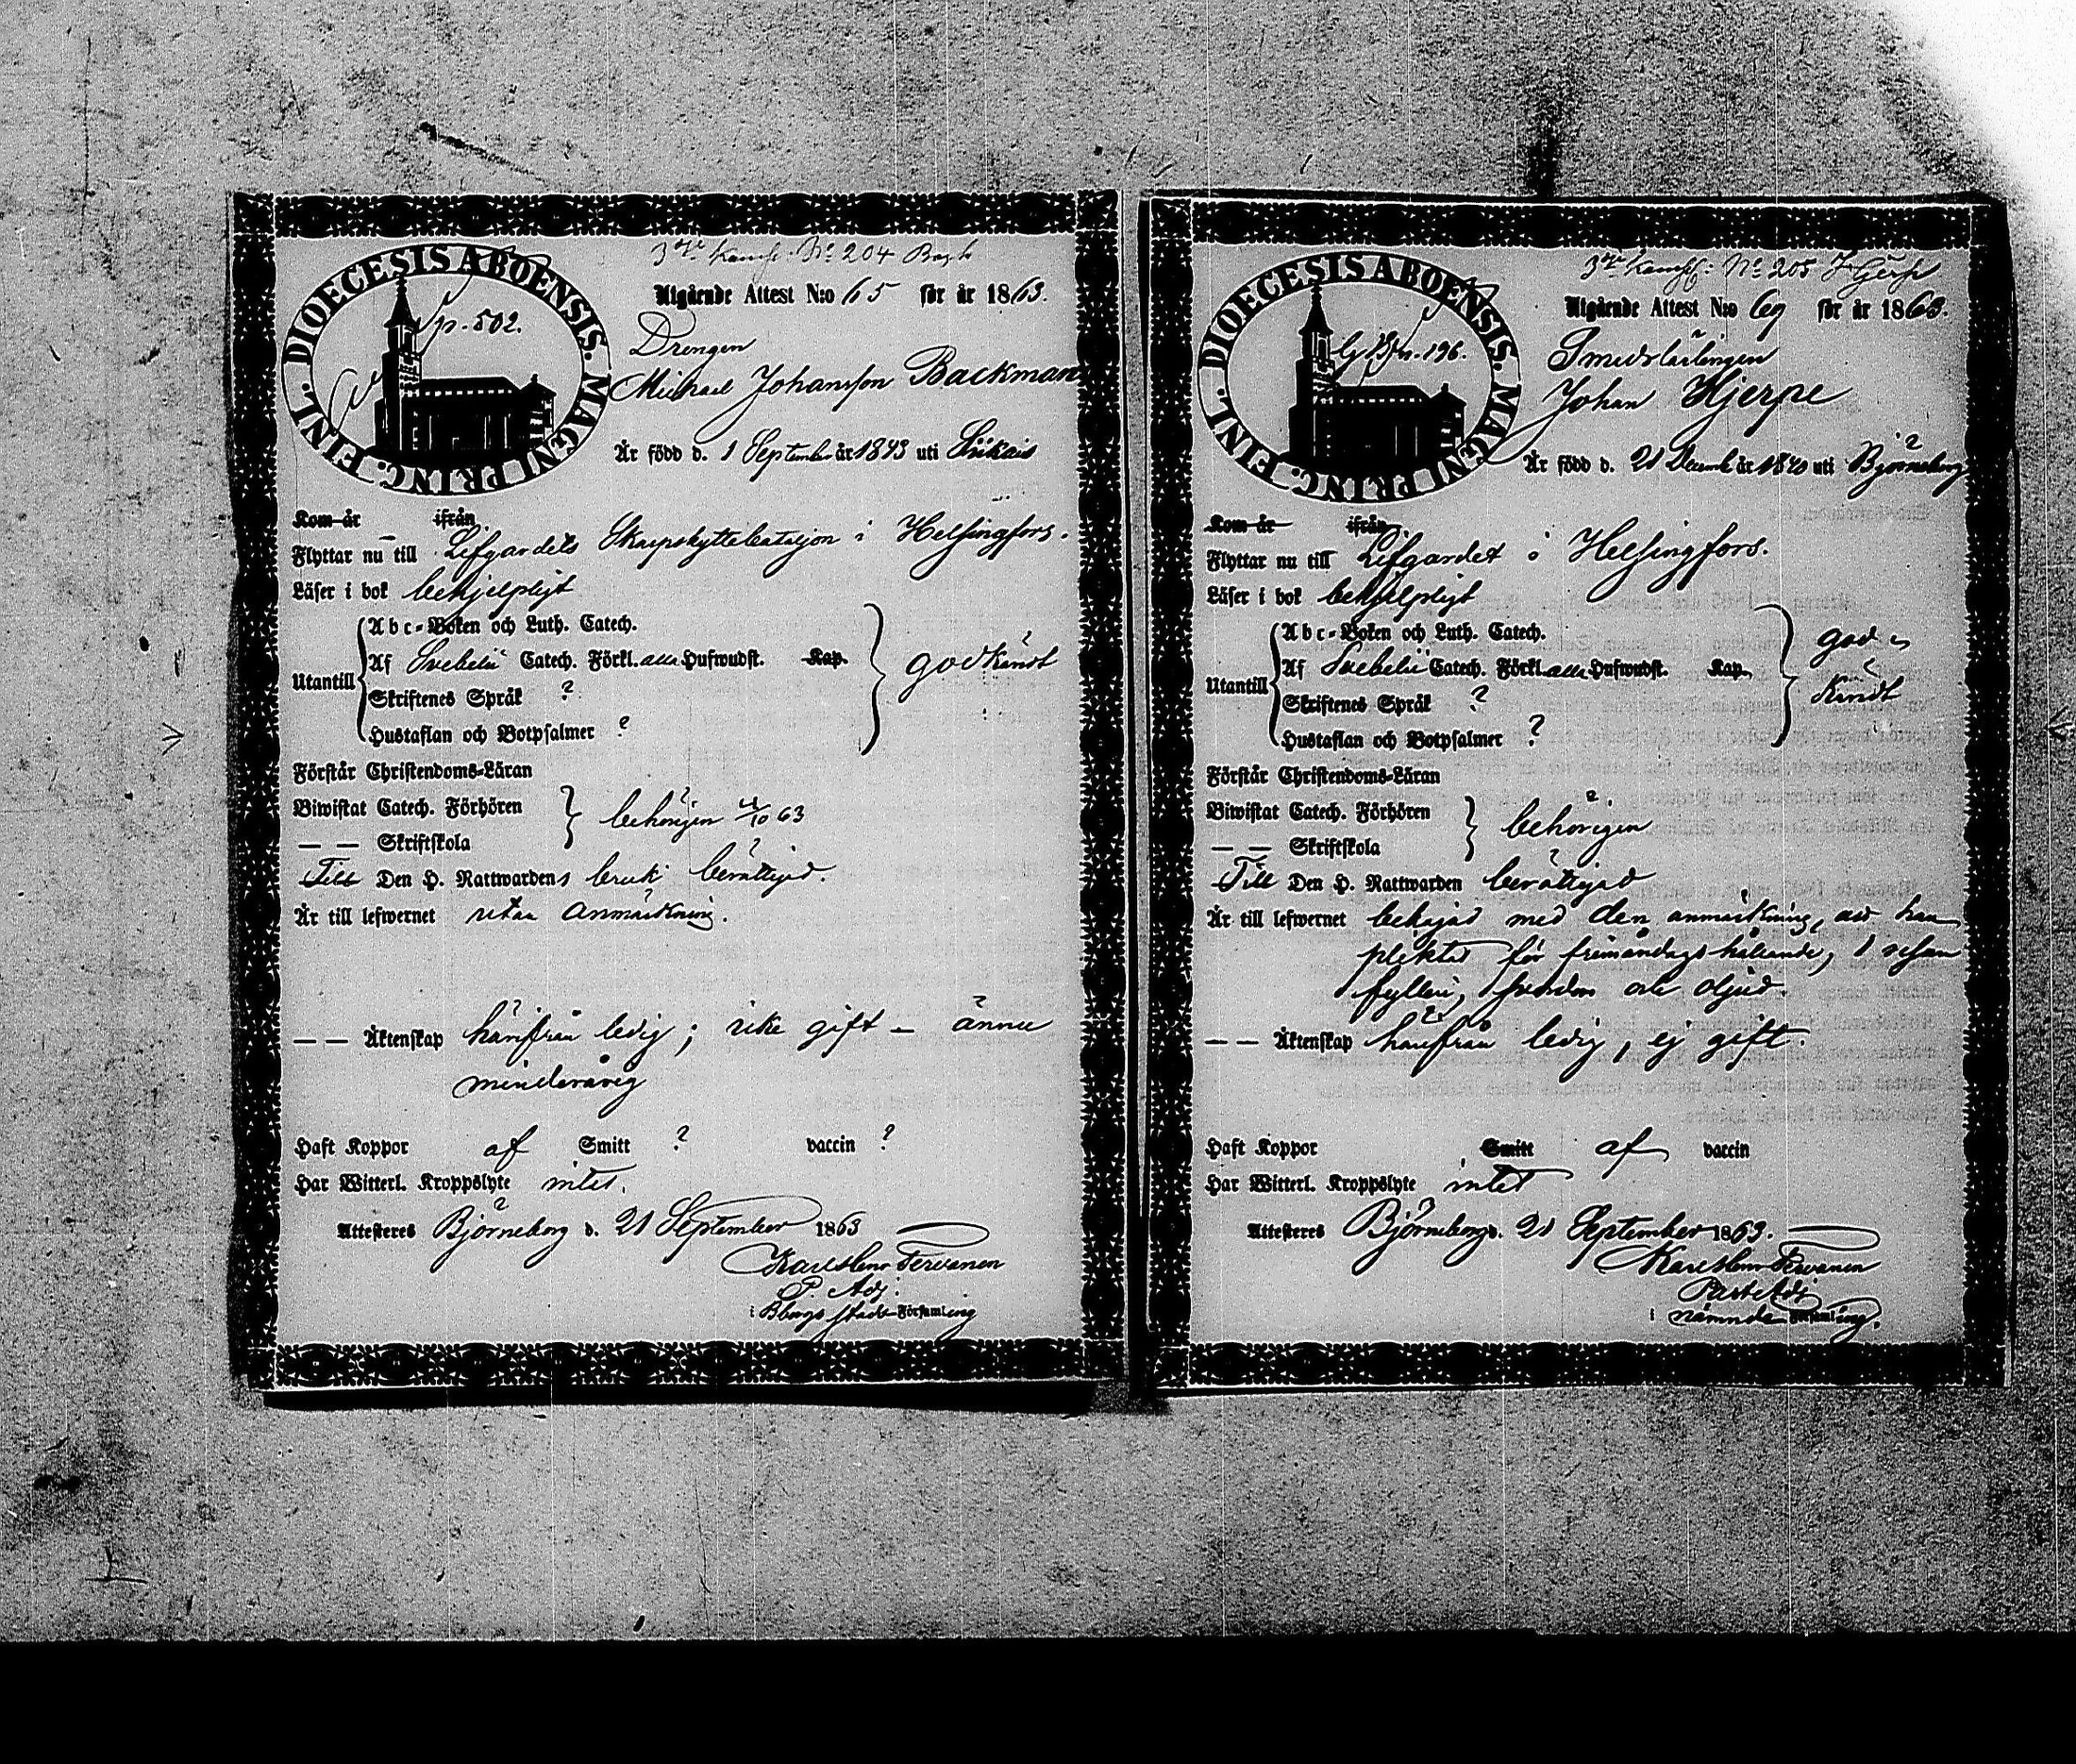 3dje Komp. No 204 Bagh
DIOECESIS ABOENSIS. MAGNI PRINC. FINL.
p. 502.
Utgående Attest N:o 65 för år 1863.
Drengen
Michael Johansson Backman
Är född d. 1 September år 1843 uti Siikais
Kom år ifrån
Flyttar nu till Lifgardets Skarpskyttebataljon i Helsingfors.
Läser i bok behjelpligt
Utantill
Abc-Boken och Luth. Catech.
Af Svebelii Catech. Förkl. alla Hufwudst. Kap.
Skriftenes Språk ?
Hustaflan och Botpsalmer ?
godkändt
Förstår Christendoms-Läran
Biwistat Catech. Förhören
— — Skriftskola
behörigen 4/10 63
Till Den H. Nattwardens bruk berättigad.
Är till lefwernet utan anmärkning.
— — Äktenskap härifrån ledig; icke gift – ännu
minderårig
Haft Koppor af Smitt ? vaccin ?
Har Witterl. Kroppslyte intet.
Attesteres Björneborg d. 21 September 1863
Karl Henr Tervanen
P. Adj.
i Bborgs stads Församling
3dje Komp: No 205 J Gerp
DIOECESIS ABOENSIS. MAGNI PRINC. FINL.
196.
Utgående Attest N:o 69 för år 1863.
Smedslärlingen
Johan Hjerpe
Är född d. 21 Decemb år 1840 uti Björneborg
Kom år ifrån
Flyttar nu till Lifgardet i Helsingfors.
Läser i bok behjelpligt
Utantill
Abc-Boken och Luth. Catech.
Af Svebelii Catech. Förkl. alla Hufwudst. Kap.
Skriftenes Språk ?
Hustaflan och Botpsalmer ?
god
kändt
Förstår Christendoms-Läran
Biwistat Catech. Förhören
— — Skriftskola
behörigen
Till Den H. Nattwarden berättigad
Är till lefwernet med den anmärkning, att han
pliktat för frimåndagshållande, 1 resan
fylleri, svordom och oljud.
— — Äktenskap härifrån ledig, ej gift.
Haft Koppor Smitt af vaccin
Har Witterl. Kroppslyte intet
Attesteres Björneborg d. 21 September 1863.
Karl Henr Tervanen
Past Adj
i nämnde Församling.